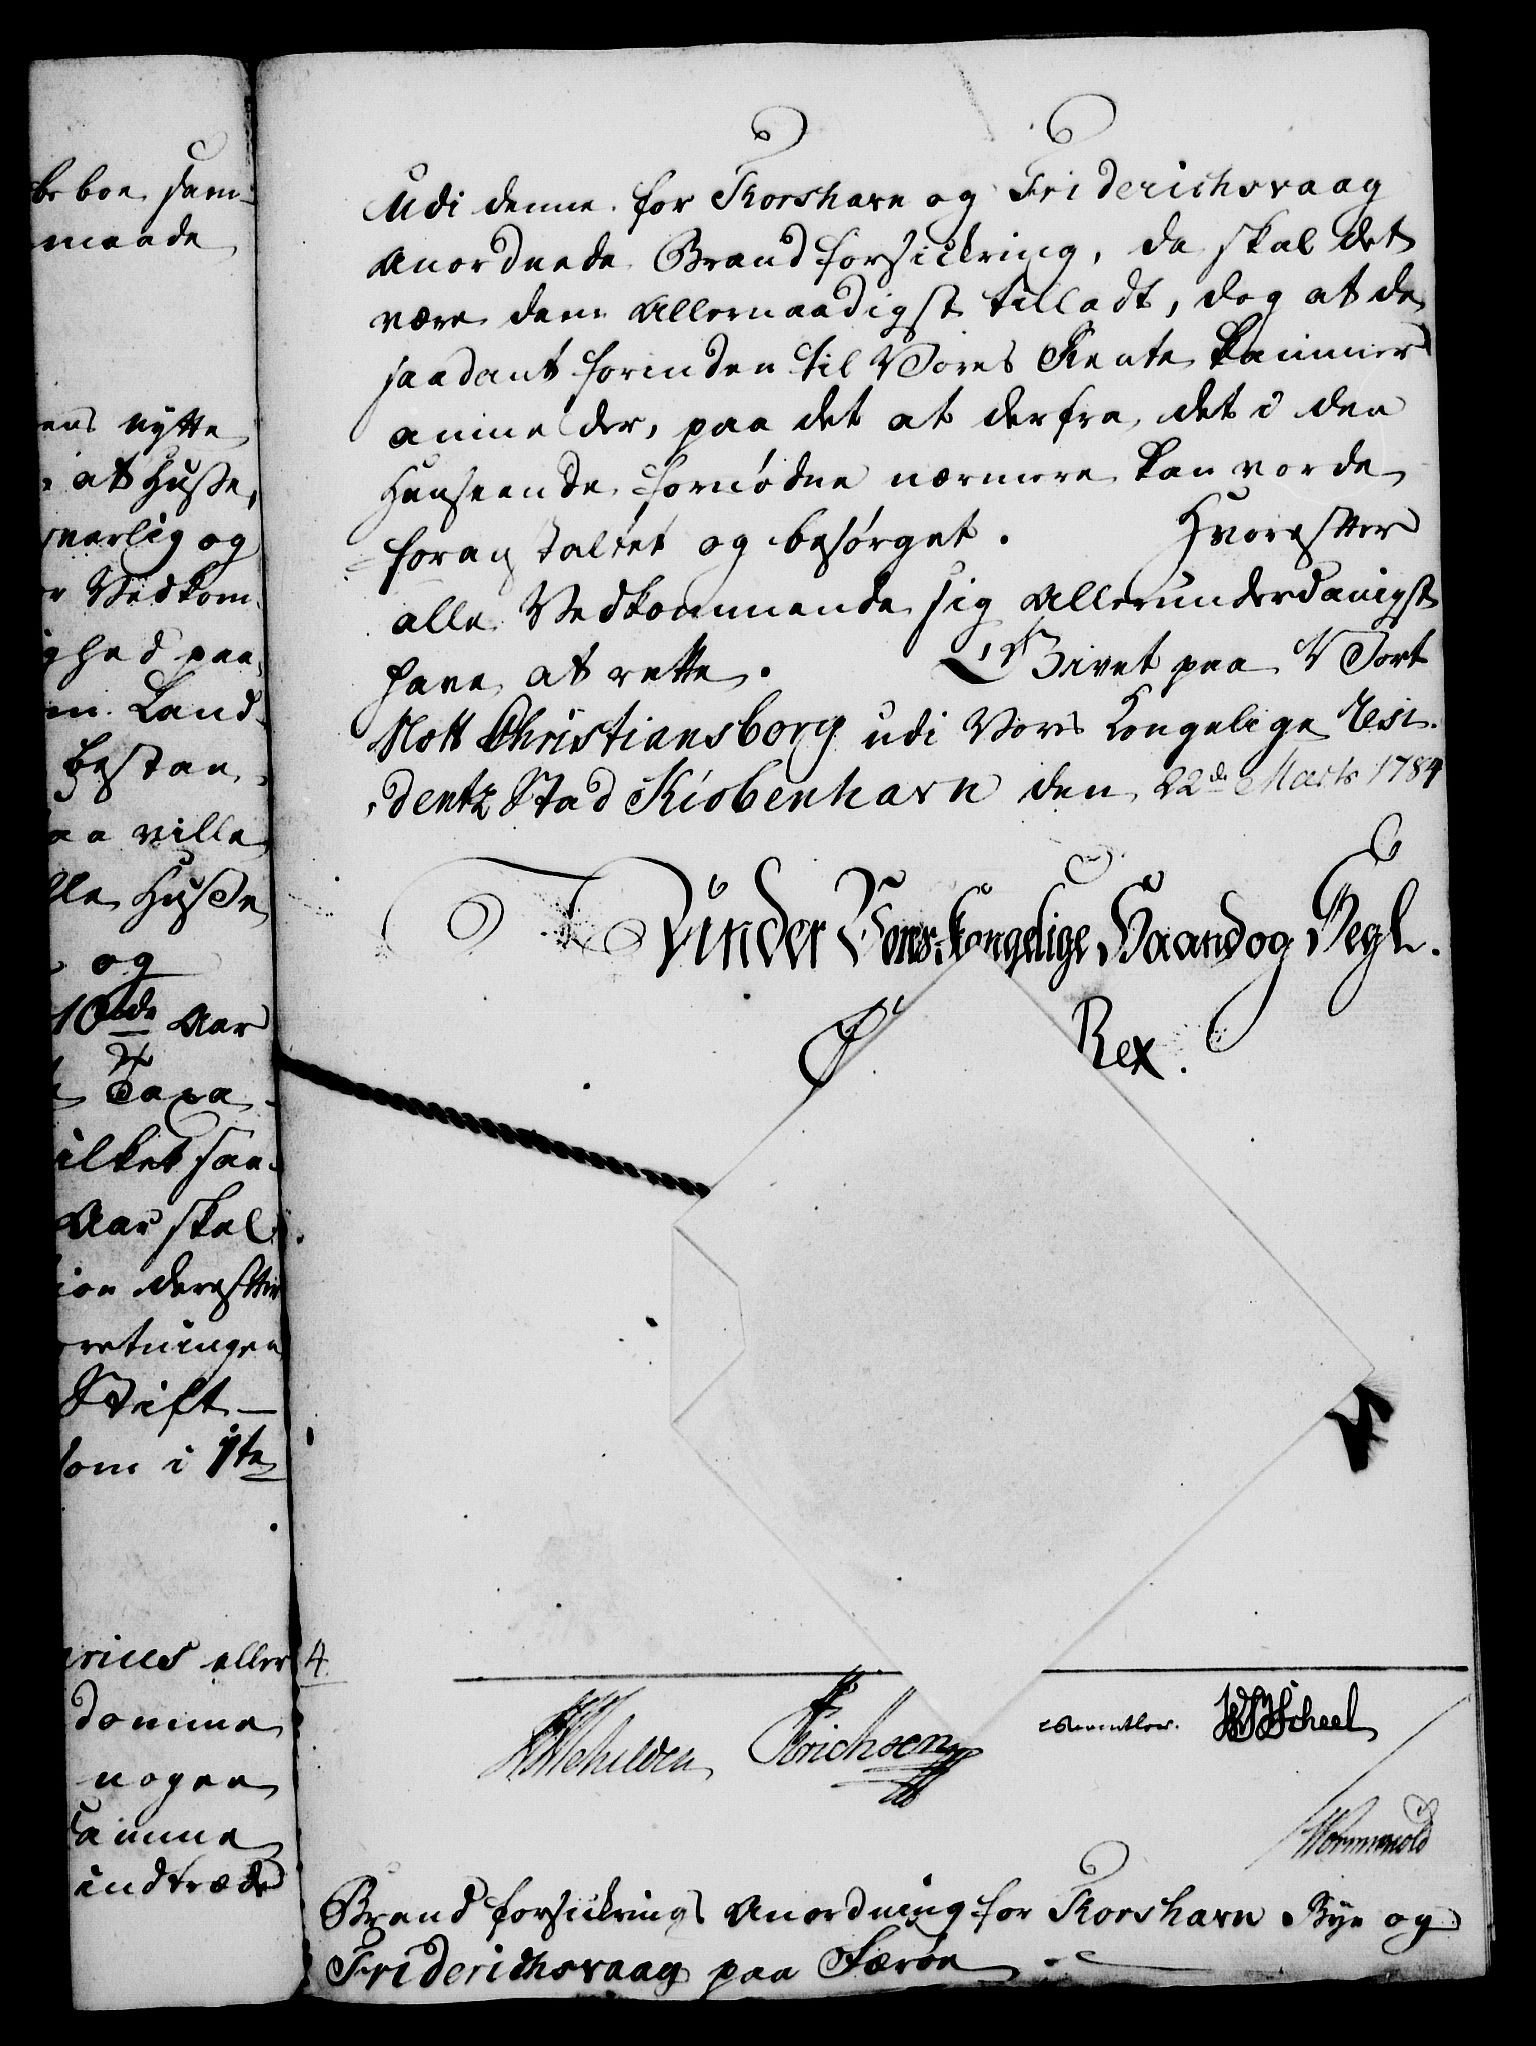 be boe sam-
maade
ens nytte
at Husse,
svarlig og
r Vedkom-
ghed paa
m Land-
bestaa-
aa ville
lle Husse
og
10de Aar
Taxa-
ilket saa-
Aar skal
ion derefter
retningen
Stift-
som i 1te
aries eller
domme
nogen
samme
indtræde
Udi denne for Thorshavn og Friderichsvaag
anordnede Brandforsickring, da skal det
være dem Allernaadigst tilladt, dog at de
saadant forinden til Vores Rente Kammer
anmelder, paa det at derfra det i den
Henseende fornødne nærmere kan vorde
foranstaltet og besørget. Hvorefter
alle Vedkommende sig Allerunderdanigst
have at rette. Givet paa Vort
Slott Christiansborg udi Vores Kongelige Resi-
dentz Stad Kiøbenhavn den 22de Marts 1784
Under Vores Kongelige Haand og Segl.
C Rex.
4
Schilden Erichsen Reventlow. Scheel
Wormskiold
Brandforsickrings Anordning for Thorshavn Bye og
Friderichsvaag paa Færøe